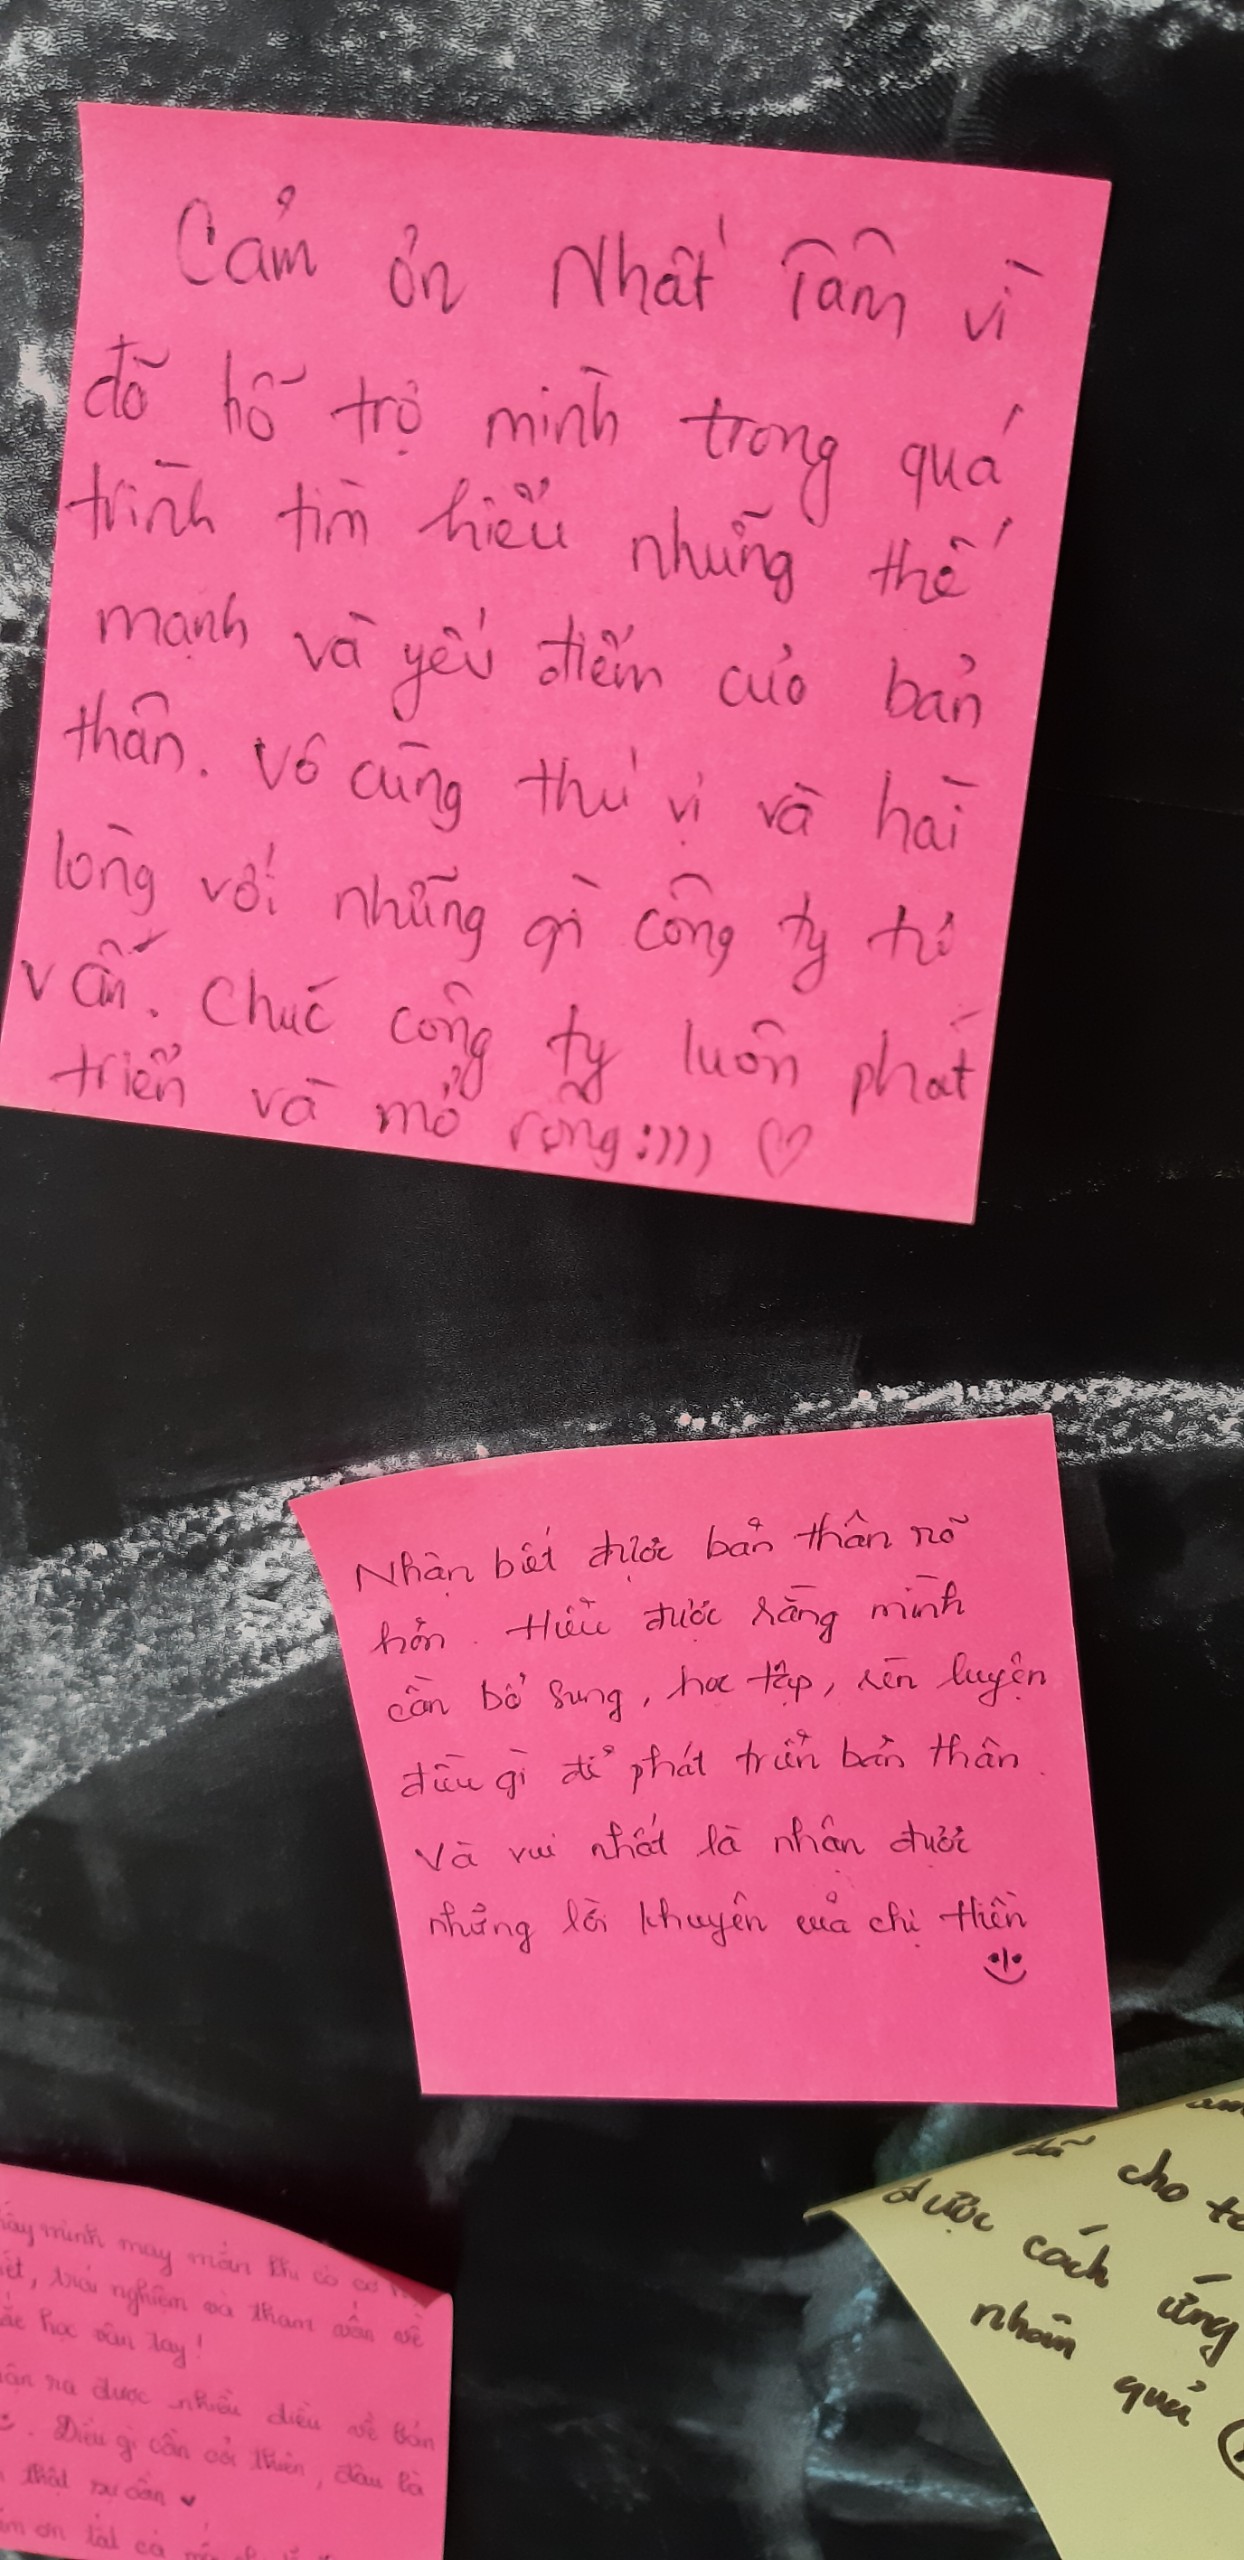 Cảm ơn Nhất Tâm vì
đã hỗ trợ mình trong quá
trình tìm hiểu những thế
mạnh và yếu điểm của bản
thân. Vô cùng thú vị và hài
lòng với những gì công ty tư
vấn. Chúc công ty luôn phát
triển và mở rộng:)))) ♡
Nhận biết được bản thân rõ
hơn. Hiểu được rằng mình
cần bổ sung, học tập, rèn luyện
điều gì để phát triển bản thân.
Và vui nhất là nhận được
những lời khuyên của chị Hiền
đã cho
được cách ứng
nhân quả
mình may mắn khi có cơ
trải nghiệm và tham vấn về
học vân tay!
ra được nhiều điều về bản
. Điều gì cần cải thiện, đâu là
thật sự cần
ơn tất cả